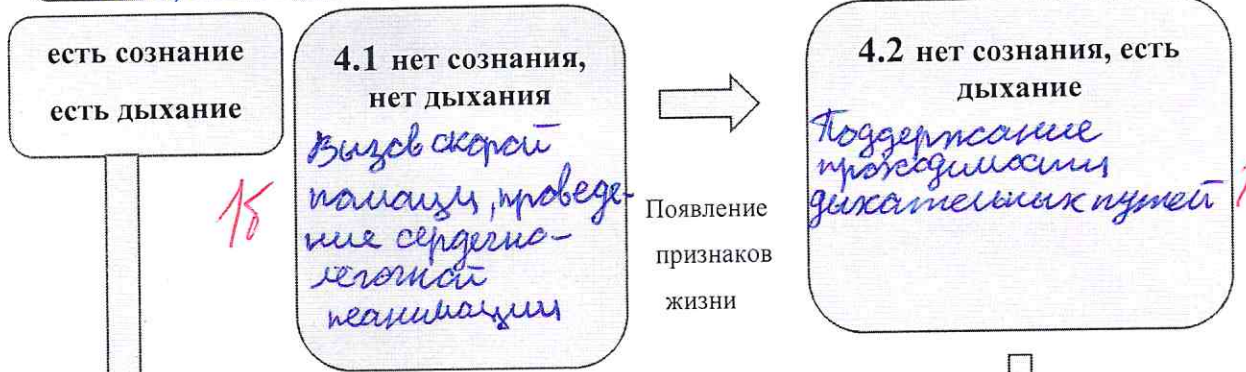 есть сознание
есть дыхание
4.1 нет сознания,
нет дыхания
Вызов скорой
помощи, проведе-
ние сердечно-
легочной
реанимации
1б
Появление
признаков
жизни
4.2 нет сознания, есть
дыхание
Поддержание
проходимости
дыхательных путей